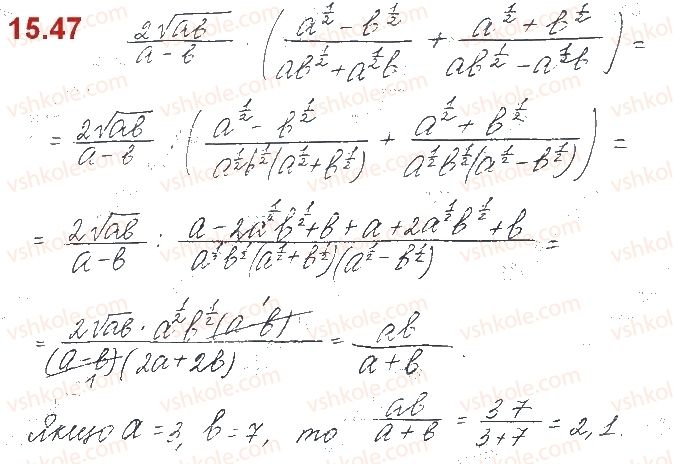 15.47
2√ab / (a − b) : ( (a^{1/2} − b^{1/2}) / (ab^{1/2} + a^{1/2}b) + (a^{1/2} + b^{1/2}) / (ab^{1/2} − a^{1/2}b) ) =
= 2√ab / (a − b) : ( (a^{1/2} − b^{1/2}) / (a^{1/2}b^{1/2}(a^{1/2} + b^{1/2})) + (a^{1/2} + b^{1/2}) / (a^{1/2}b^{1/2}(a^{1/2} − b^{1/2})) ) =
= 2√ab / (a − b) : (a − 2a^{1/2}b^{1/2} + b + a + 2a^{1/2}b^{1/2} + b) / (a^{1/2}b^{1/2}(a^{1/2} + b^{1/2})(a^{1/2} − b^{1/2})) =
= 2√ab · a^{1/2}b^{1/2}(a − b) / ((a − b)(2a + 2b)) = ab / (a + b).
Якщо a = 3, b = 7, то ab / (a + b) = 3·7 / (3 + 7) = 2,1.
vshkole.com